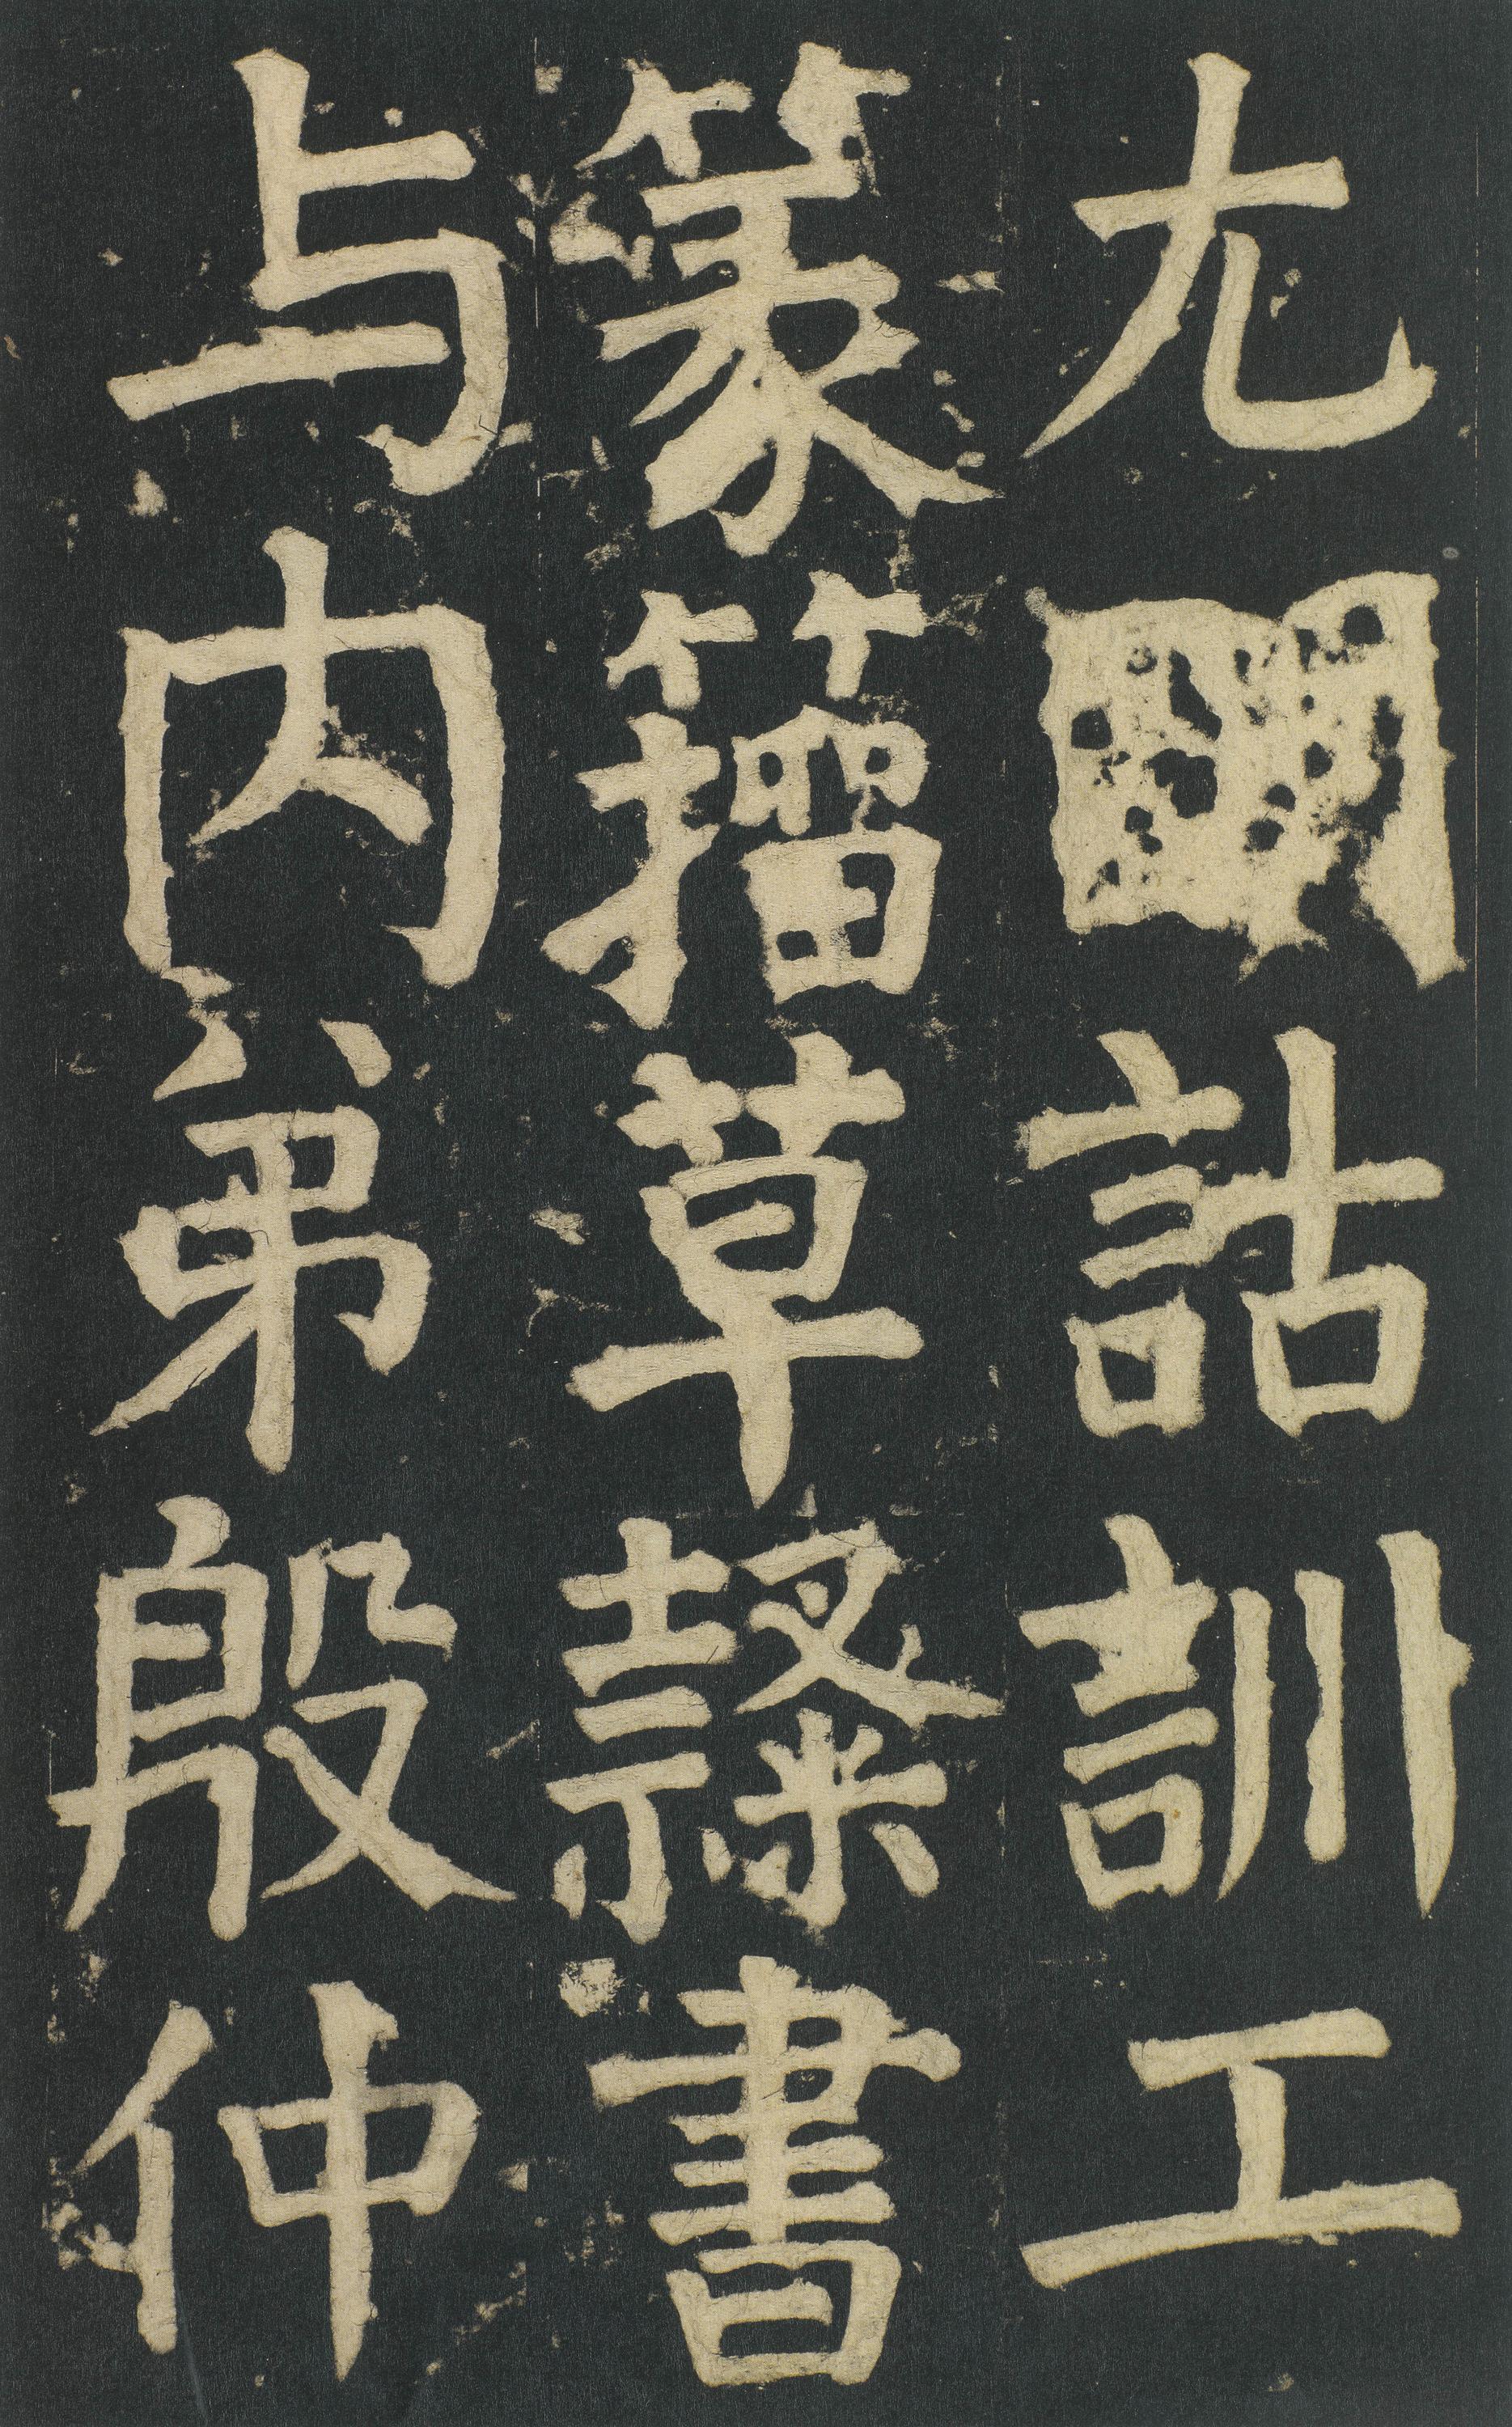 尤明詁訓工
篆籀草隸書
与内弟殷仲